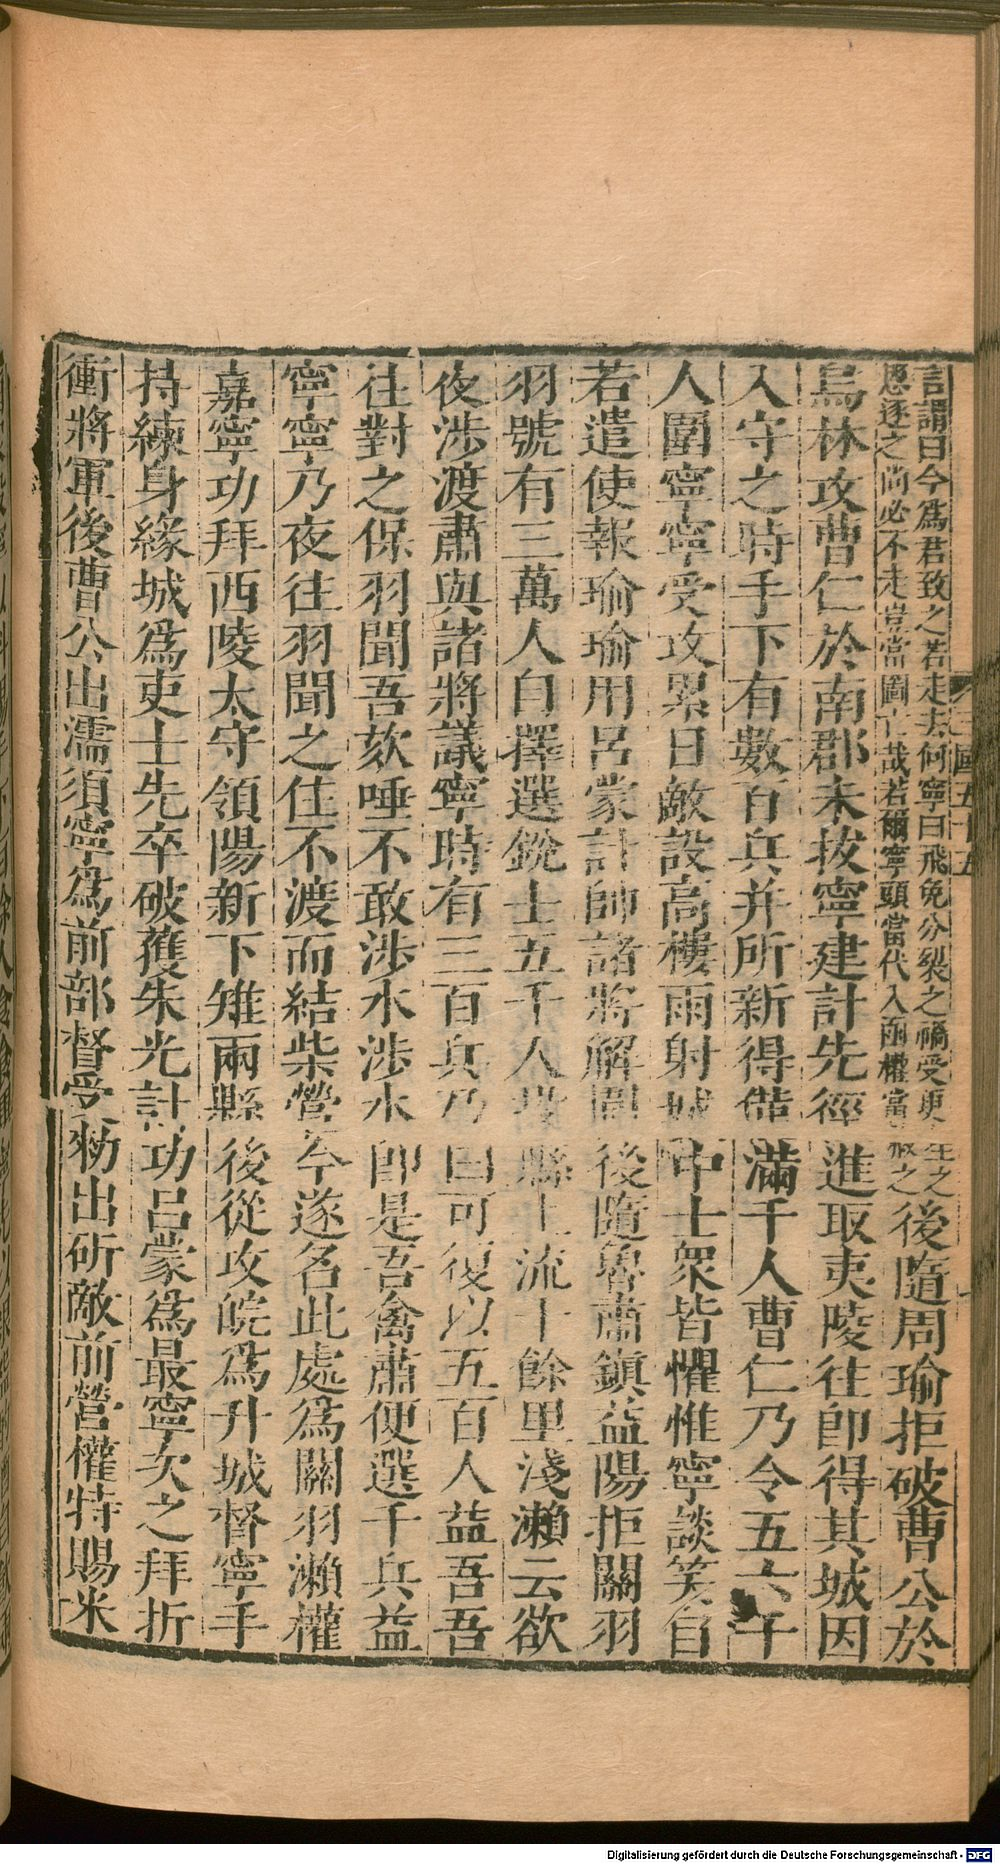 言謂曰今爲君致之若走去何寧曰飛免分裂之禍受更生之
恩逐之尚必不走豈當圖亡哉若爾寧頭當代入函權當赦之
後隨周瑜拒破曹公於
烏林攻曹仁於南郡未拔寧建計先徑進取夷陵往卽得其城因
入守之時手下有數百兵并所新得僅滿千人曹仁乃令五六千
人圍寧寧受攻累日敵設高樓雨射城中士衆皆懼惟寧談笑自
若遣使報瑜瑜用呂蒙計帥諸將解圍後隨魯肅鎮益陽拒關羽
羽號有三萬人自擇選銳士五千人投縣上流十餘里淺瀨云欲
夜涉渡肅與諸將議寧時有三百兵乃曰可復以五百人益吾吾
往對之保羽聞吾欬唾不敢涉水涉水卽是吾禽肅便選千兵益
寧寧乃夜往羽聞之住不渡而結柴營今遂名此處爲關羽瀨權
嘉寧功拜西陵太守領陽新下雉兩縣後從攻皖爲升城督寧手
持練身緣城爲吏士先卒破獲朱光計功呂蒙爲最寧次之拜折
衝將軍後曹公出濡須寧爲前部督受勑出斫敵前營權特賜米
國五十五
Digitalisierung gefördert durch die Deutsche Forschungsgemeinschaft - DFG